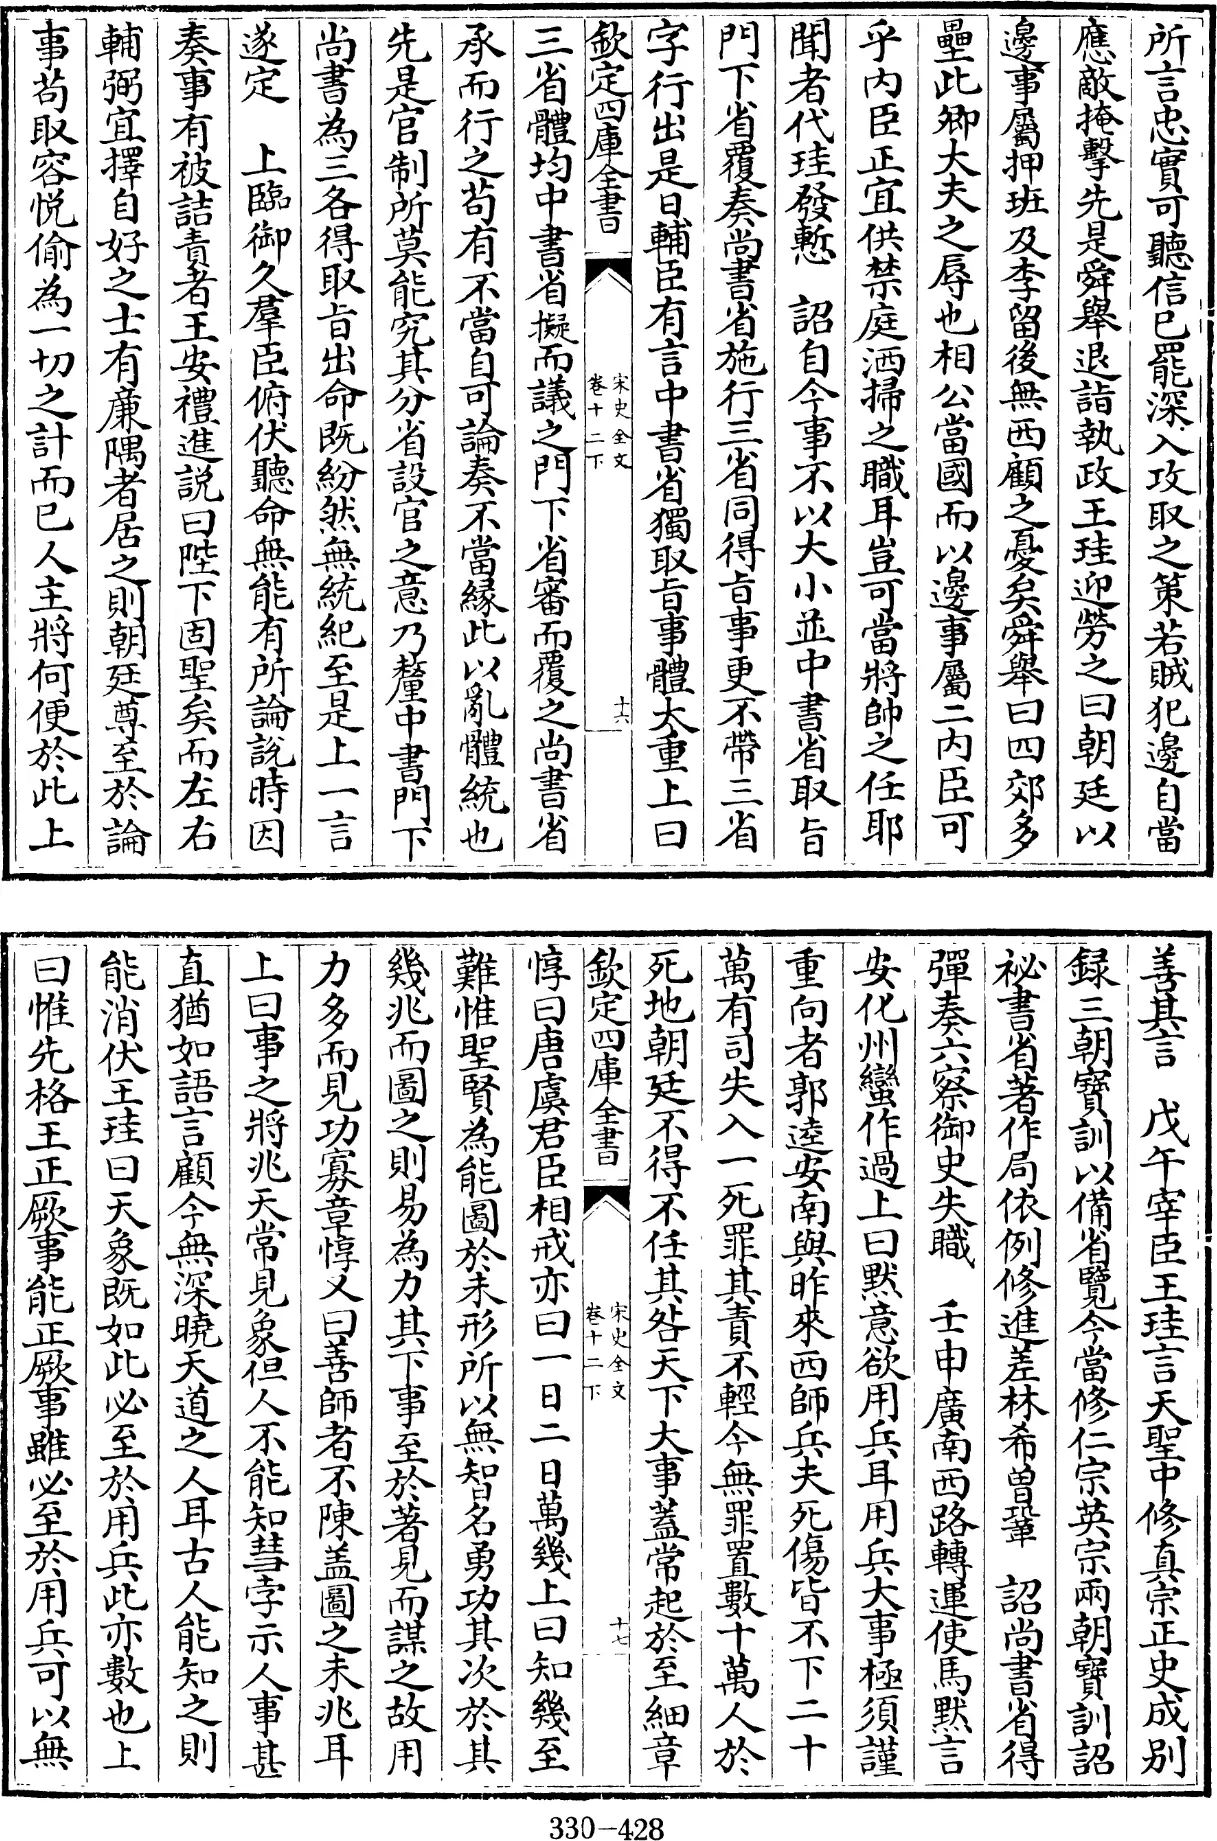 所言忠實可聽信已罷深入攻取之策若賊犯邊自當
應敵掩擊先是舜舉退詣執政王珪迎勞之曰朝廷以
邊事屬押班及李留後無西顧之憂矣舜舉曰四郊多
壘此卿大夫之辱也相公當國而以邊事屬二内臣可
乎内臣正宜供禁庭洒掃之職耳豈可當將帥之任耶
聞者代珪發慙　詔自今事不以大小並中書省取旨
門下省覆奏尚書省施行三省同得旨事更不帶三省
字行出是日輔臣有言中書省獨取旨事體太重上曰
欽定四庫全書
宋史全文
卷十二下
十六
三省體均中書省擬而議之門下省審而覆之尚書省
承而行之苟有不當自可論奏不當縁此以亂體統也
先是官制所莫能究其分省設官之意乃釐中書門下
尚書為三各得取旨出命既紛然無統紀至是上一言
遂定　上臨御久羣臣俯伏聽命無能有所論説時因
奏事有被詰責者王安禮進説曰陛下固聖矣而左右
輔弼宜擇自好之士有廉隅者居之則朝廷尊至於論
事苟取容悦偷為一切之計而已人主將何便於此上
善其言　戊午宰臣王珪言天聖中修真宗正史成别
録三朝寳訓以備省覽今當修仁宗英宗兩朝寳訓詔
祕書省著作局依例修進差林希曽鞏　詔尚書省得
彈奏六察御史失職　壬申廣南西路轉運使馬黙言
安化州蠻作過上曰黙意欲用兵耳用兵大事極須謹
重向者郭逵安南與昨來西師兵夫死傷皆不下二十
萬有司失入一死罪其責不輕今無罪置數十萬人於
死地朝廷不得不任其咎天下大事蓋常起於至細章
欽定四庫全書
宋史全文
卷十二下
十七
惇曰唐虞君臣相戒亦曰一日二日萬幾上曰知幾至
難惟聖賢為能圖於未形所以無智名勇功其次於其
幾兆而圖之則易為力其下事至於著見而謀之故用
力多而見功寡章惇又曰善師者不陳盖圖之未兆耳
上曰事之將兆天常見象但人不能知彗孛示人事甚
直猶如語言顧今無深曉天道之人耳古人能知之則
能消伏王珪曰天象既如此必至於用兵此亦數也上
曰惟先格王正厥事能正厥事雖必至於用兵可以無
330-428